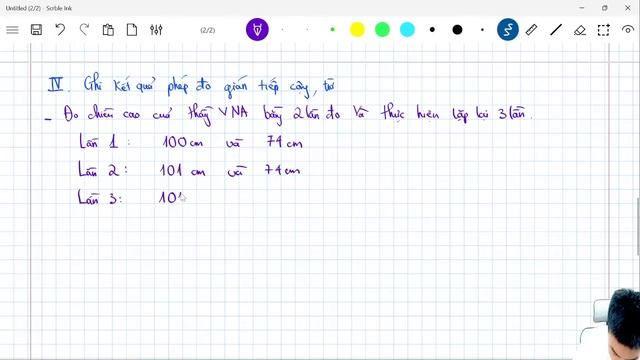 Untitled (2/2) - Scrble Ink
(2/2)
IV. Ghi kết quả phép đo gián tiếp cộng, trừ
- Đo chiều cao của thầy VNA bằng 2 lần đo và thực hiện lặp lại 3 lần.
Lần 1: 100 cm và 74 cm
Lần 2: 101 cm và 74 cm
Lần 3: 10